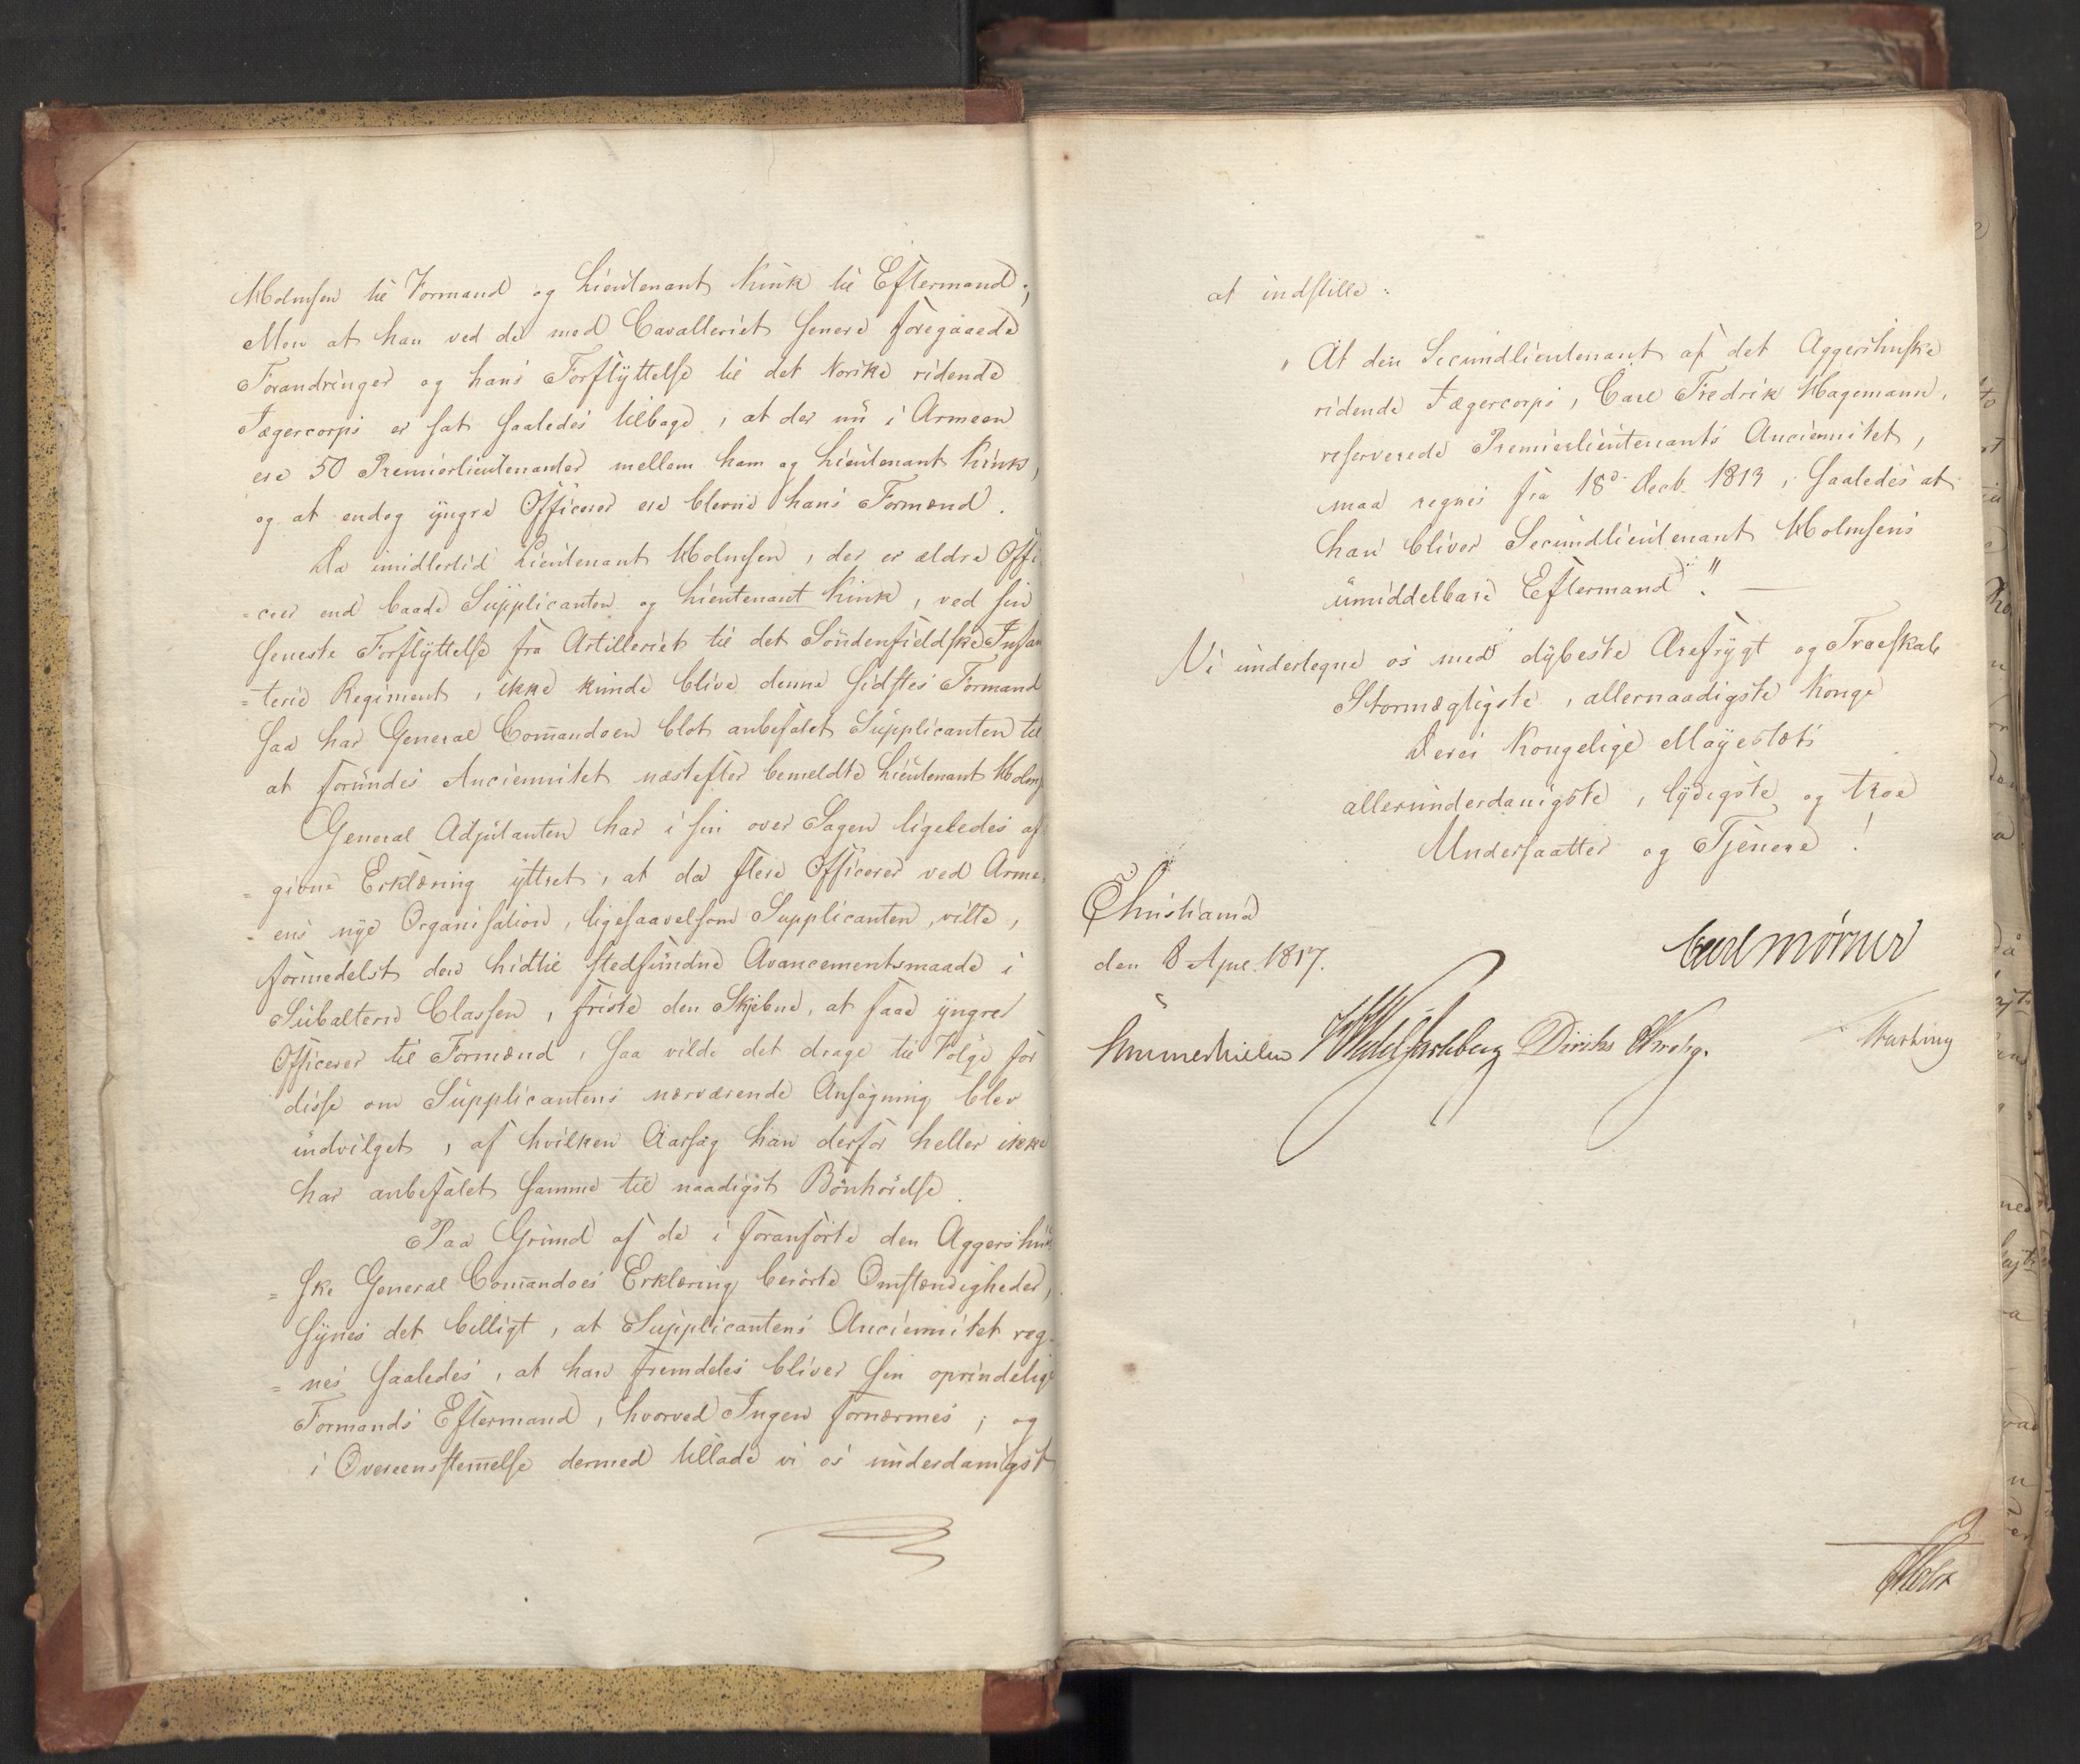 Holmsen til Formand og Lieutenant Kink til Eftermand;
Men at han ved de med Cavalleriet senere foregaaede
Forandringer og hans Forflyttelse til det Norske ridende
Jægercorps er sat saaledes tilbage, at der nu i Armeen
ere 50 Premierlieutenanter mellem ham og Lieutenant Kink,
og at endog yngre Officerer ere blevne hans Formænd.
Da imidlertid Lieutenant Holmsen, der er ældre Offi
=cier end baade Supplicanten og Lieutenant Kink, ved sin
seneste Forflyttelse fra Artilleriet til det Söndenfieldske Infan
=terie Regiment, ikke kunde blive denne sidstes Formand
saa har General Com̄andoen blot anbefalet Supplicanten til
at forundes Anciennitet næstefter bemeldte Lieutenant Holms
General Adjutanten har i sin over Sagen ligeledes af
=givne Erklæring yttret, at da flere Officerer ved Arme
=ens nye Organisation, ligesaavelsom Supplicanten, vilte,
formedelst den hidtil stedfundne Avancementsmaade i
Subalterne Classen, friste den Skjebne, at faae yngre
Officerer til Formænd, saa vilde det drage til Følge for
disse om Supplicantens nærværende Ansøgning blev
indvilget, af hvilken Aarsag han derfor heller ikke
har anbefalet samme til naadigst Bönhörelse.
Paa Grund af de i foranförte den Aggershuu
=ske General Com̄andoes Erklæring berörte Omstændigheder,
synes det billigt, at Supplicantens Anciennitet reg
=nes saaledes, at han fremdeles bliver sin oprindelige
Formands Eftermand, hvorved Ingen fornærmes; og
i Overeensstem̄else dermed tillade vi os underdanigst
at indstille:
"At den Secundlieutenant af det Aggershuske
ridende Jægercorps, Carl Fredrik Hagemann,
reserverede Premierlieutenants Anciennitet,
maa regnes fra 18d. Decb. 1813, saaledes at
han bliver Secundlieutenant Holmsens
umiddelbare Eftermand". —
Vi undertegne os med dybeste Ærefrygt og Troeskab
Stormægtigste, allernaadigste Konge
Deres Kongelige Mayestæts
allerunderdanigste, lydigste og troe
Undersaatter og Tjenere!
Christiania
den 8 Apr. 1817.
Carl Mörner
Hummerhielm Wedel Jarlsberg Diriks Krohg.